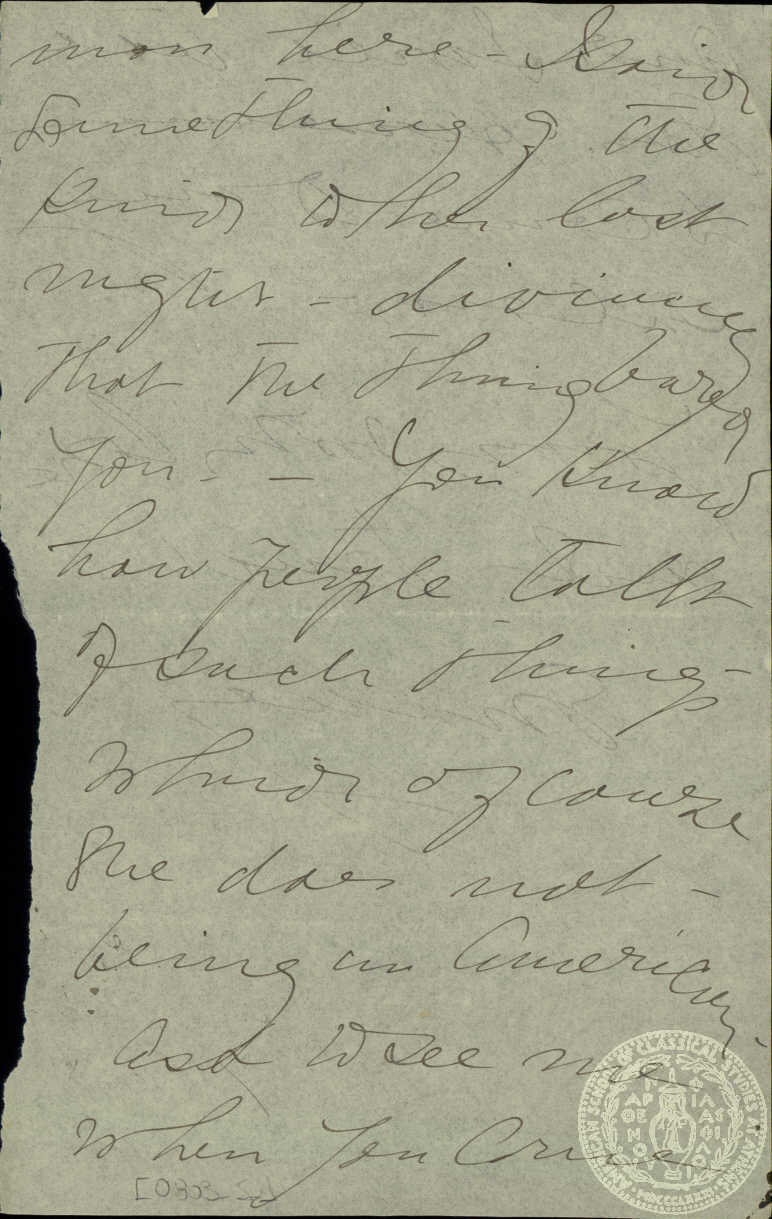 mon here - I said
something of the
kind to her last
night - divining
that the thing bored
you. - You know
how people talk
of such things -
which of course
she does not -
being an American.
Ask to see me
when you come
AMERICAN SCHOOL OF CLASSICAL STUDIES AT ATHENS